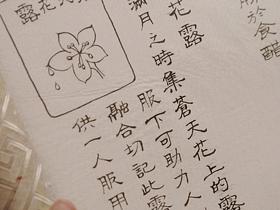 於食醋
花露
滿月之時集蒼天花上的露
服下可助力人
融合切記此露
供一人服用
露花